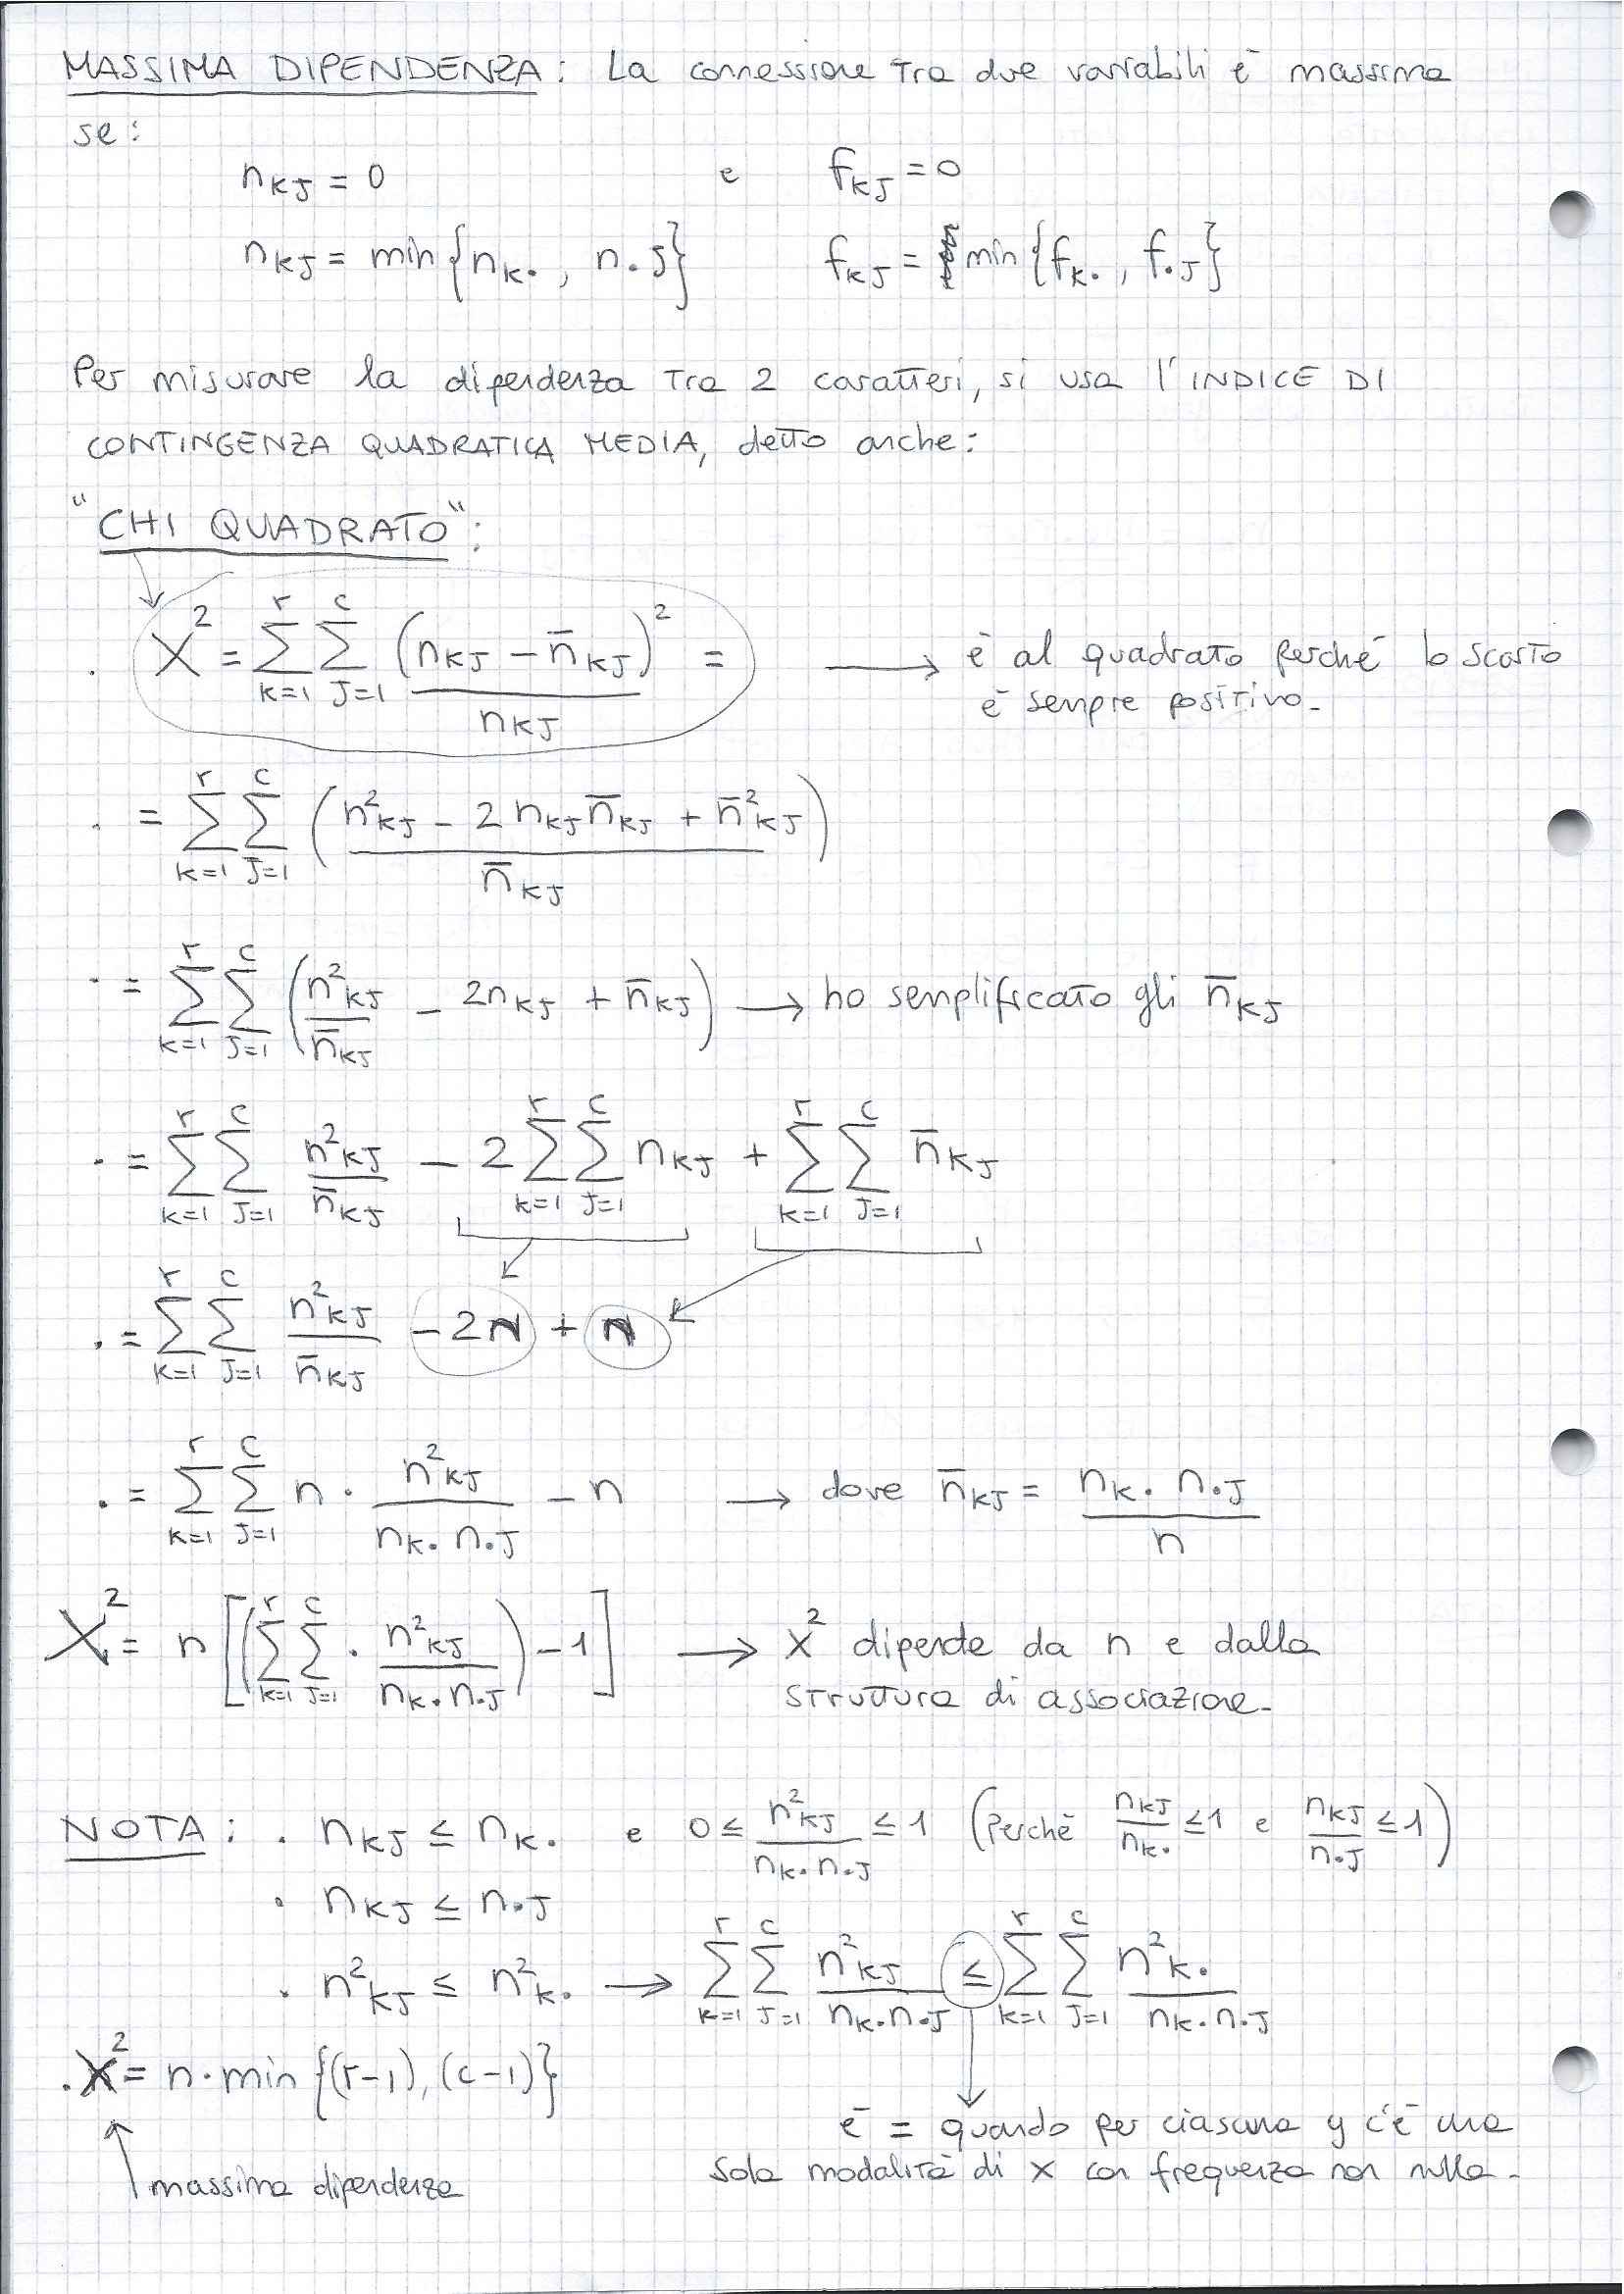 MASSIMA DIPENDENZA: La connessione tra due variabili è massima
se:
n_KJ = 0 e f_KJ = 0
n_KJ = min{n_K• , n_•J} f_KJ = min{f_K• , f_•J}
Per misurare la dipendenza tra 2 caratteri, si usa l'INDICE DI
CONTINGENZA QUADRATICA MEDIA, detto anche:
"CHI QUADRATO":
X² = Σ_{K=1}^{r} Σ_{J=1}^{c} (n_KJ − n̄_KJ)² / n_KJ = → è al quadrato perché lo scarto
è sempre positivo.
• = Σ_{K=1}^{r} Σ_{J=1}^{c} (n²_KJ − 2 n_KJ n̄_KJ + n̄²_KJ / n̄_KJ)
• = Σ_{K=1}^{r} Σ_{J=1}^{c} (n²_KJ / n̄_KJ − 2n_KJ + n̄_KJ) → ho semplificato gli n̄_KJ
• = Σ_{K=1}^{r} Σ_{J=1}^{c} n²_KJ / n̄_KJ − 2 Σ_{K=1}^{r} Σ_{J=1}^{c} n_KJ + Σ_{K=1}^{r} Σ_{J=1}^{c} n̄_KJ
• = Σ_{K=1}^{r} Σ_{J=1}^{c} n²_KJ / n̄_KJ − 2n + n
• = Σ_{K=1}^{r} Σ_{J=1}^{c} n • n²_KJ / n_K• n_•J − n → dove n̄_KJ = n_K• n_•J / n
X² = n [(Σ_{K=1}^{r} Σ_{J=1}^{c} • n²_KJ / n_K• n_•J) − 1] → X² dipende da n e dalla
struttura di associazione.
NOTA: • n_KJ ≤ n_K• e 0 ≤ n²_KJ / n_K• n_•J ≤ 1 (Perché n_KJ / n_K• ≤ 1 e n_KJ / n_•J ≤ 1)
• n_KJ ≤ n_•J
• n²_KJ ≤ n²_K• → Σ_{K=1}^{r} Σ_{J=1}^{c} n²_KJ / n_K• n_•J ≤ Σ_{K=1}^{r} Σ_{J=1}^{c} n²_K• / n_K• n_•J
• X² = n • min {(r−1), (c−1)}
è = quando per ciascuna y c'è una
sola modalità di x con frequenza non nulla.
massima dipendenza